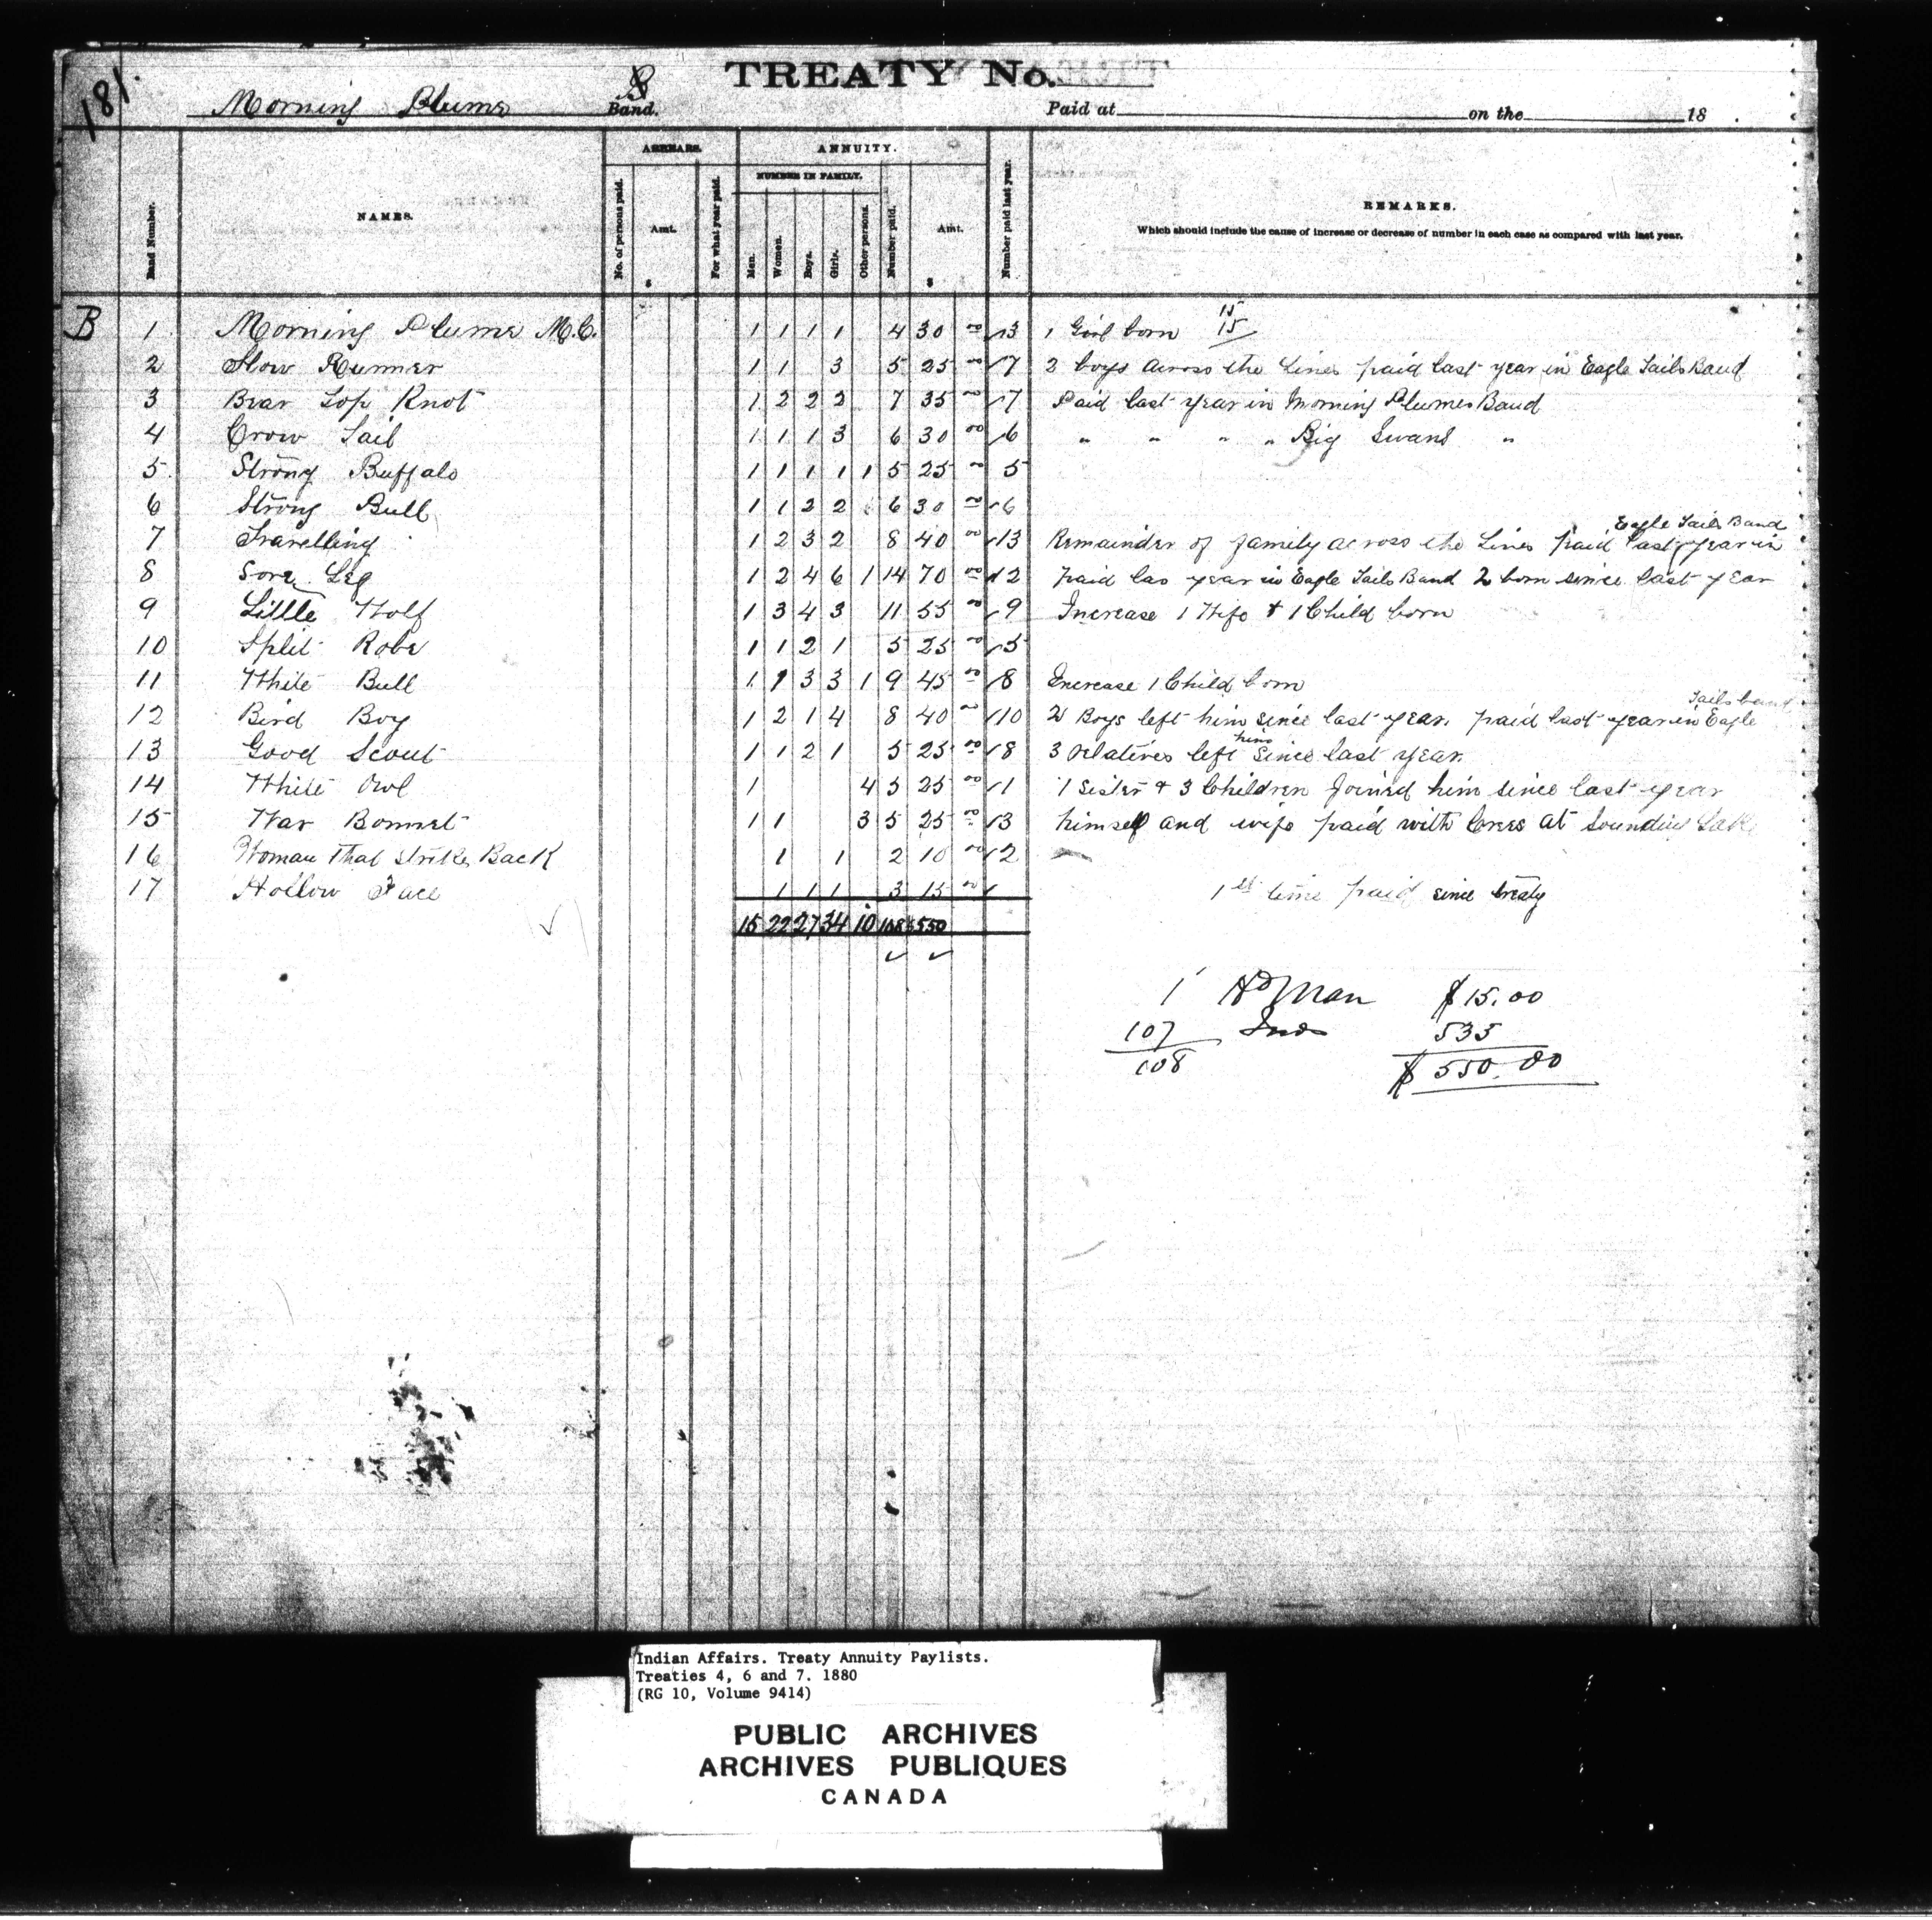 181
TREATY No.
Morning Plume Band.
Paid at on the 18 .
Band Number.
NAMES.
ARREARS.
No. of persons paid.
Amt.
$
For what year paid.
ANNUITY.
NUMBER IN FAMILY.
Men.
Women.
Boys.
Girls.
Other persons.
Number paid.
Amt.
$
Number paid last year.
REMARKS.
Which should include the cause of increase or decrease of number in each case as compared with last year.
15
B 1 Morning Plume M.C. 1 1 1 1 4 30 00 3 1 Girl born 15
2 Slow Runner 1 1 3 5 25 00 7 2 boys across the Lines paid last year in Eagle Tails Band
3 Bear Top Knot 1 2 2 2 7 35 00 7 Paid last year in Morning Plumes Band
4 Crow Tail 1 1 1 3 6 30 00 6 " " " " Big Swans "
5 Strong Buffalo 1 1 1 1 1 5 25 00 5
6 Strong Bull 1 1 2 2 6 30 00 6
Eagle Tails Band
7 Travelling 1 2 3 2 8 40 00 13 Remainder of family across the Lines paid last year in
8 Sore Leg 1 2 4 6 1 14 70 00 12 paid las year in Eagle Tails Band 2 born since last year
9 Little Wolf 1 3 4 3 11 55 00 9 Increase 1 Wife + 1 Child born
10 Split Robe 1 1 2 1 5 25 00 5
11 White Bull 1 1 3 3 1 9 45 00 8 Increase 1 Child born
Tails band
12 Bird Boy 1 2 1 4 8 40 00 10 2 Boys left him since last year. paid last year in Eagle
him
13 Good Scout 1 1 2 1 5 25 00 8 3 relatives left since last year.
14 White Owl 1 4 5 25 00 1 1 Sister + 3 Children Joined him since last year
15 War Bonnet 1 1 3 5 25 00 3 himself and wife paid with Crees at Sounding Lake
16 Woman That Strikes Back 1 1 2 10 00 2
17 Hollow Face 1 1 1 3 15 00 1st time paid since treaty
15 22 27 34 10 108 $550
1 Hd Man $15.00
107 Inds 535
108 $550.00
Indian Affairs. Treaty Annuity Paylists.
Treaties 4, 6 and 7. 1880
(RG 10, Volume 9414)
PUBLIC ARCHIVES
ARCHIVES PUBLIQUES
CANADA